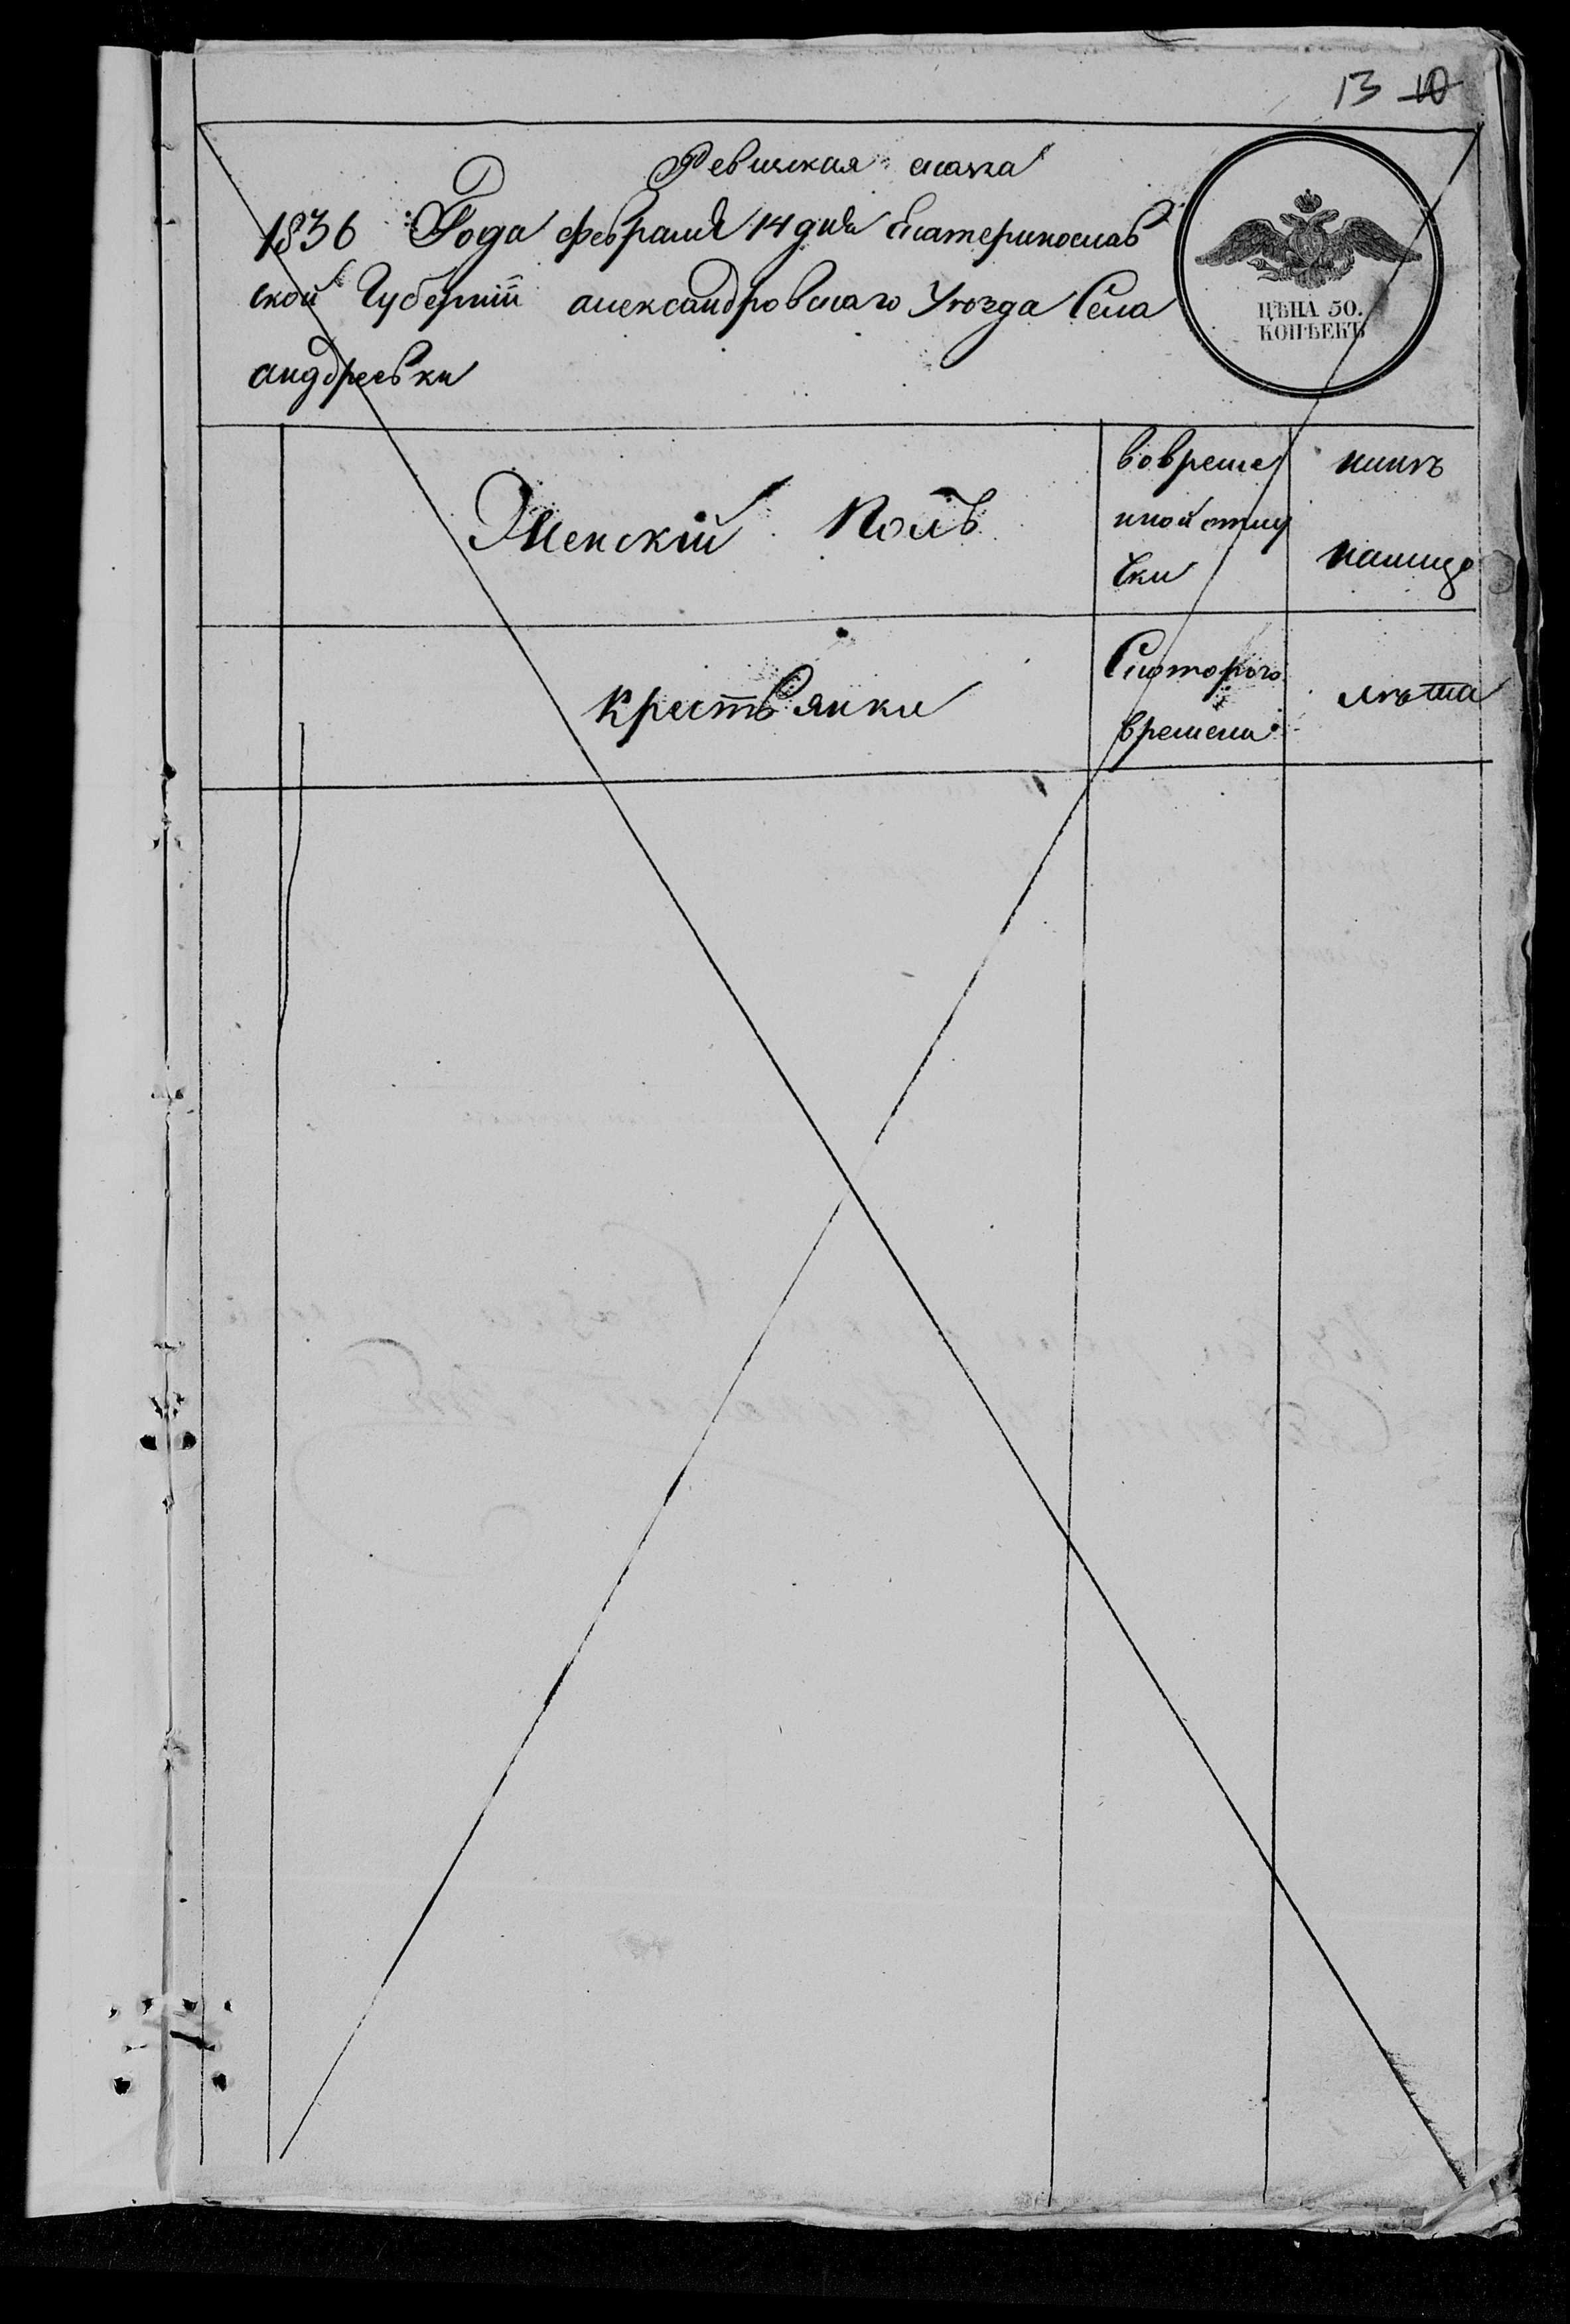 13 10
Ревижкая скаска
1836 Года февраля 14 дня Екатеринослав
ской Губернiи александровскаго Уѣзда Села
андреевки
ЦѢНА 50.
КОПѢЕКЪ
Женскiй Полъ
вовреме
нной отлу
чки
нынѣ
налицо
крестьянки
Скоторого
времени
лѣта